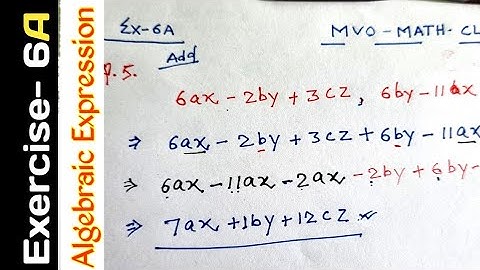 Exercise- 6A
Algebraic Expression
Ex-6A
MVO-MATH-CL
Add
5.
6ax - 2by + 3cz, 6by - 11ax
⇒ 6ax - 2by + 3cz + 6by - 11ax
⇒ 6ax - 11ax - 2ax - 2by + 6by -
⇒ 7ax + 1by + 12cz